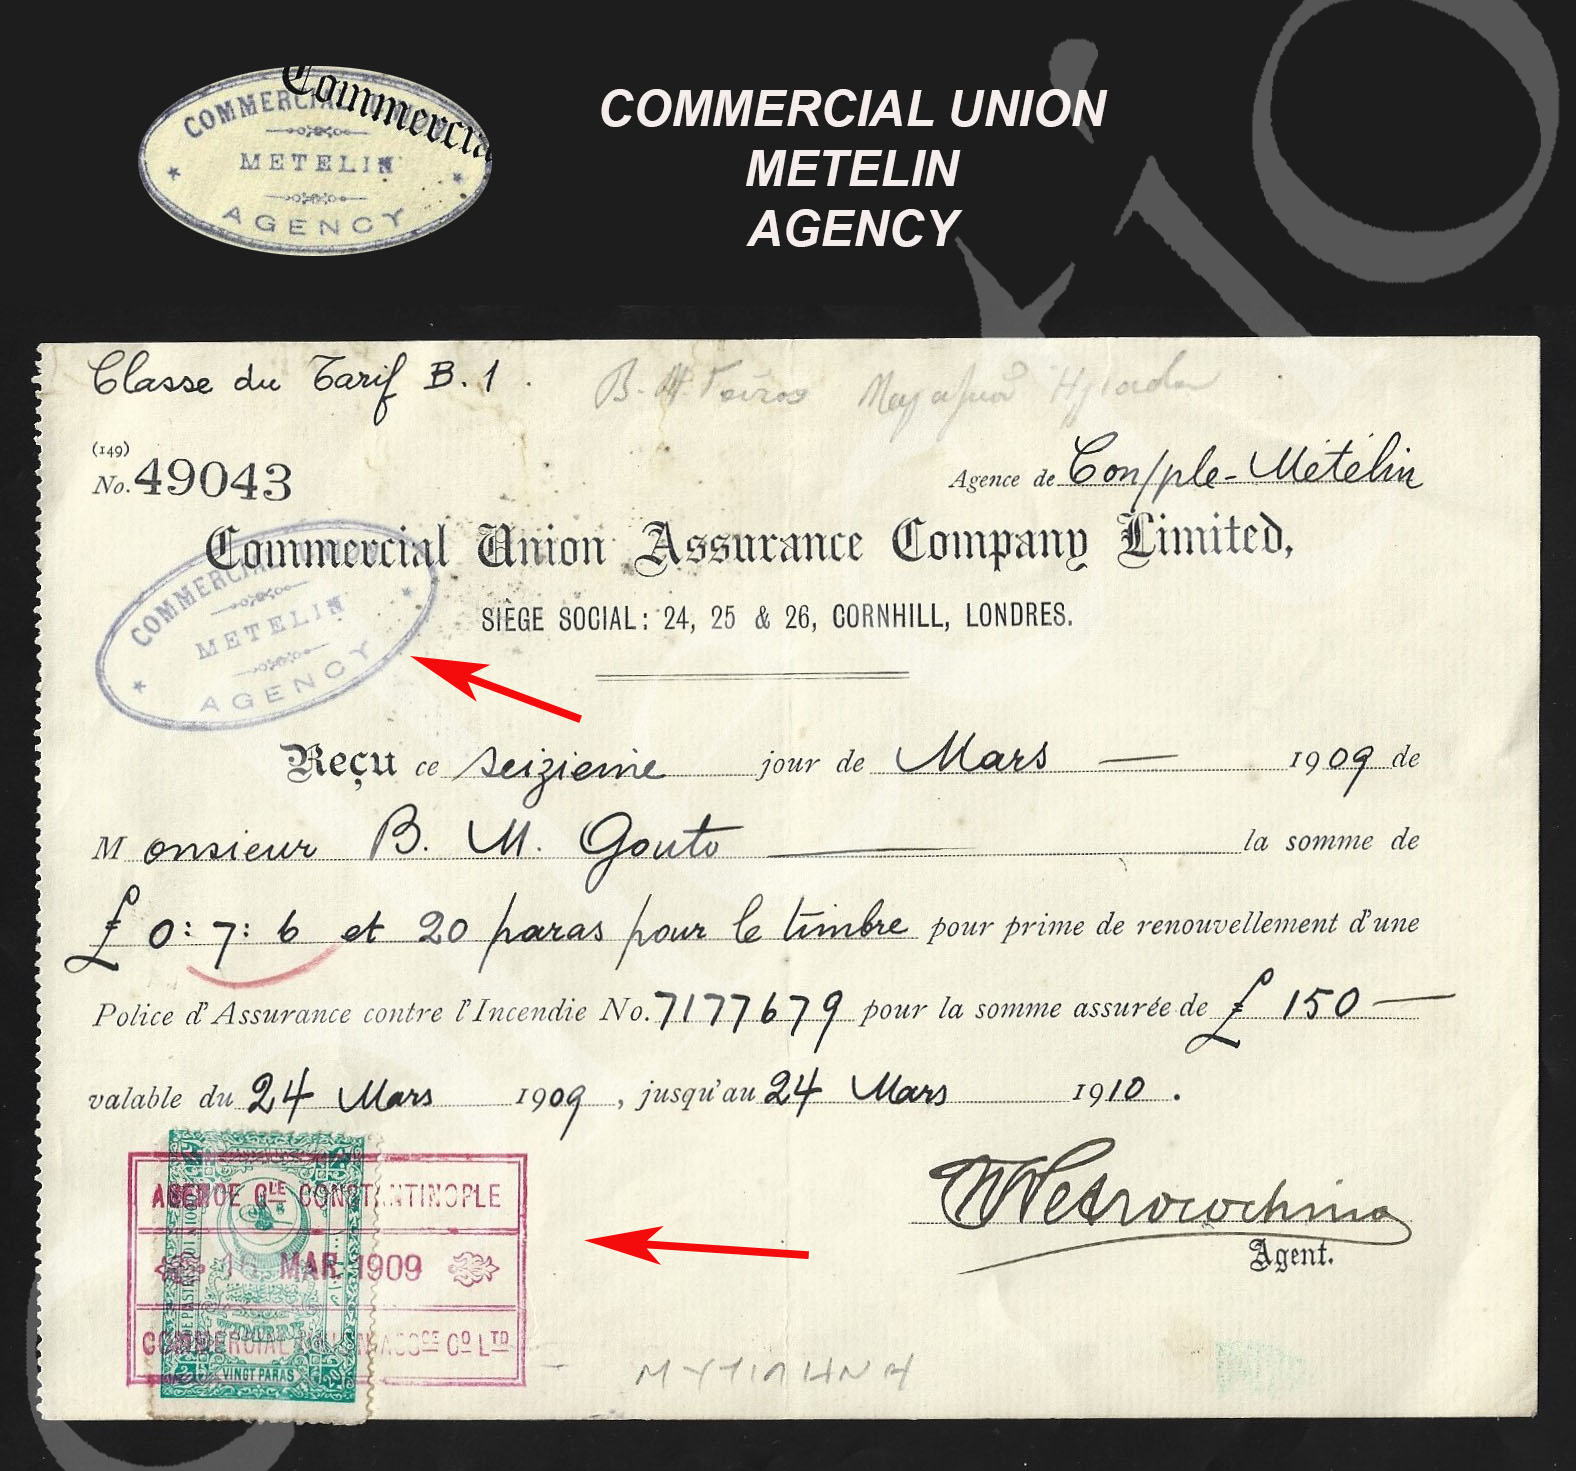 COMMERCIAL
Commercia
METELIN
AGENCY
COMMERCIAL UNION
METELIN
AGENCY
Classe du Tarif B. 1.
(149)
No. 49043
Agence de Con/ple-Métélin
Commercial Union Assurance Company Limited,
SIÈGE SOCIAL: 24, 25 & 26, CORNHILL, LONDRES.
COMMERCIAL
METELIN
AGENCY
Reçu ce seizieme jour de Mars — 1909 de
Monsieur B. M. Gouto la somme de
£ 0:7:6 et 20 paras pour le timbre pour prime de renouvellement d'une
Police d'Assurance contre l'Incendie No. 7177679 pour la somme assurée de £ 150 —
valable du 24 Mars 1909, jusqu'au 24 Mars 1910.
AGENCE GLE CONSTANTINOPLE
16 MAR 1909
COMMERCIAL UNION ASSCE CO LTD
VINGT PARAS
20
Petrocochino
Agent.
ΜΥΤΙΛΗΝΗ